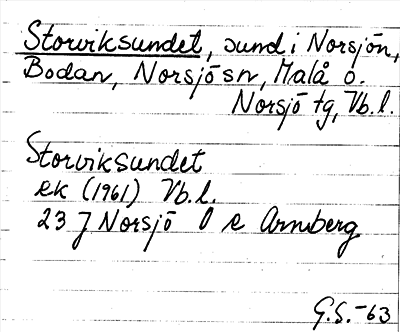 Storviksundet, sund i Norsjön,
Bodan, Norsjö sn, Malå o.
Norsjö tg, Vb.l.
Storviksundet
ek (1961) Vb.l.
23 J Norsjö O e Arnberg
G.S. -63